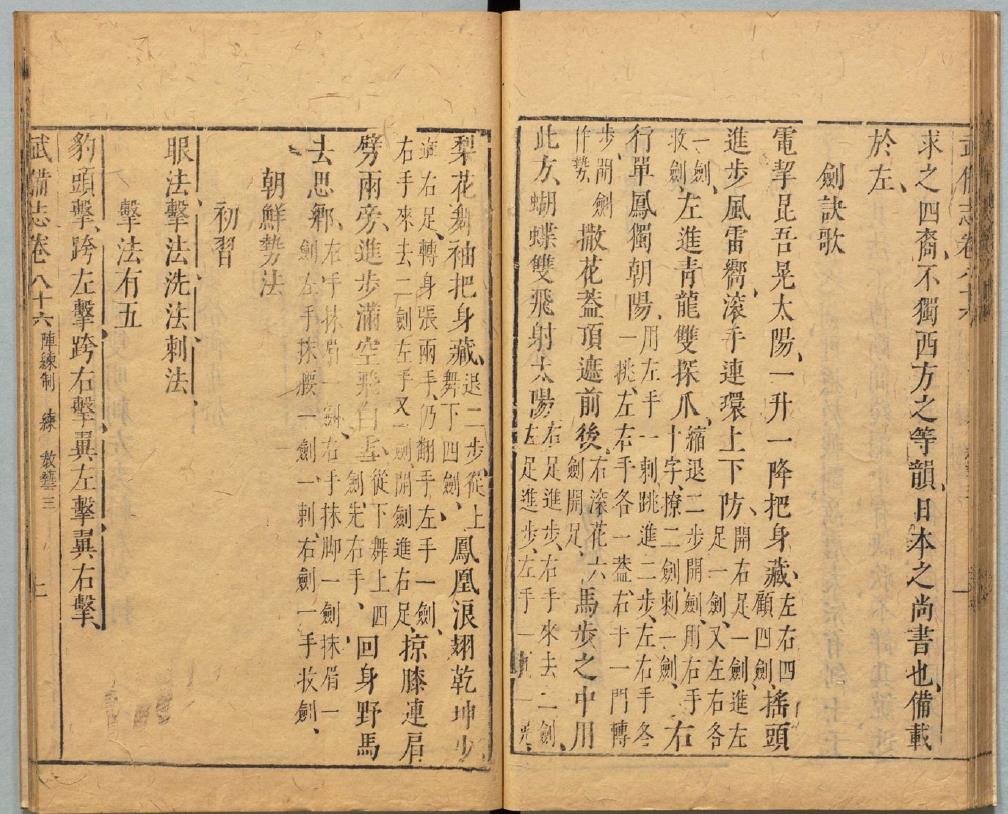 武備志卷八十六
求之四裔不獨西方之等韻日本之尚書也備載
於左
劍訣歌
電掣昆吾晃太陽一升一降把身藏左右四顧四劍搖頭
進步風雷響滾手連環上下防開右足一劍進左足一劍又左右各一劍
收劍左進青龍雙探爪縮退二步開劍用右手十字撩二劍刺一劍右
行單鳳獨朝陽用左手一刺跳進二步左右手各一挑左右手各一蓋右手一門轉步開劍
作勢撒花蓋頂遮前後右滾花六劍開足馬步之中用
此方蝴蝶雙飛射太陽右足進步右手來去二劍左足進步左手一
梨花舞袖把身藏退二步從上舞下四劍鳳凰浪翅乾坤少
進右足轉身張兩手仍翻手左手一劍右手來去二劍左手又一劍開劍進右足掠膝連肩
劈兩旁進步滿空飛白雪從下舞上四劍先右手回身野馬
去思鄉右手抹眉一劍右手抹脚一劍抹眉一劍左手抹腰一劍一刺右劍一手收劍
朝鮮勢法
初習
眼法擊法洗法刺法
擊法有五
豹頭擊跨左擊跨右擊翼左擊翼右擊
武備志卷八十六 陣練制 練 教藝三